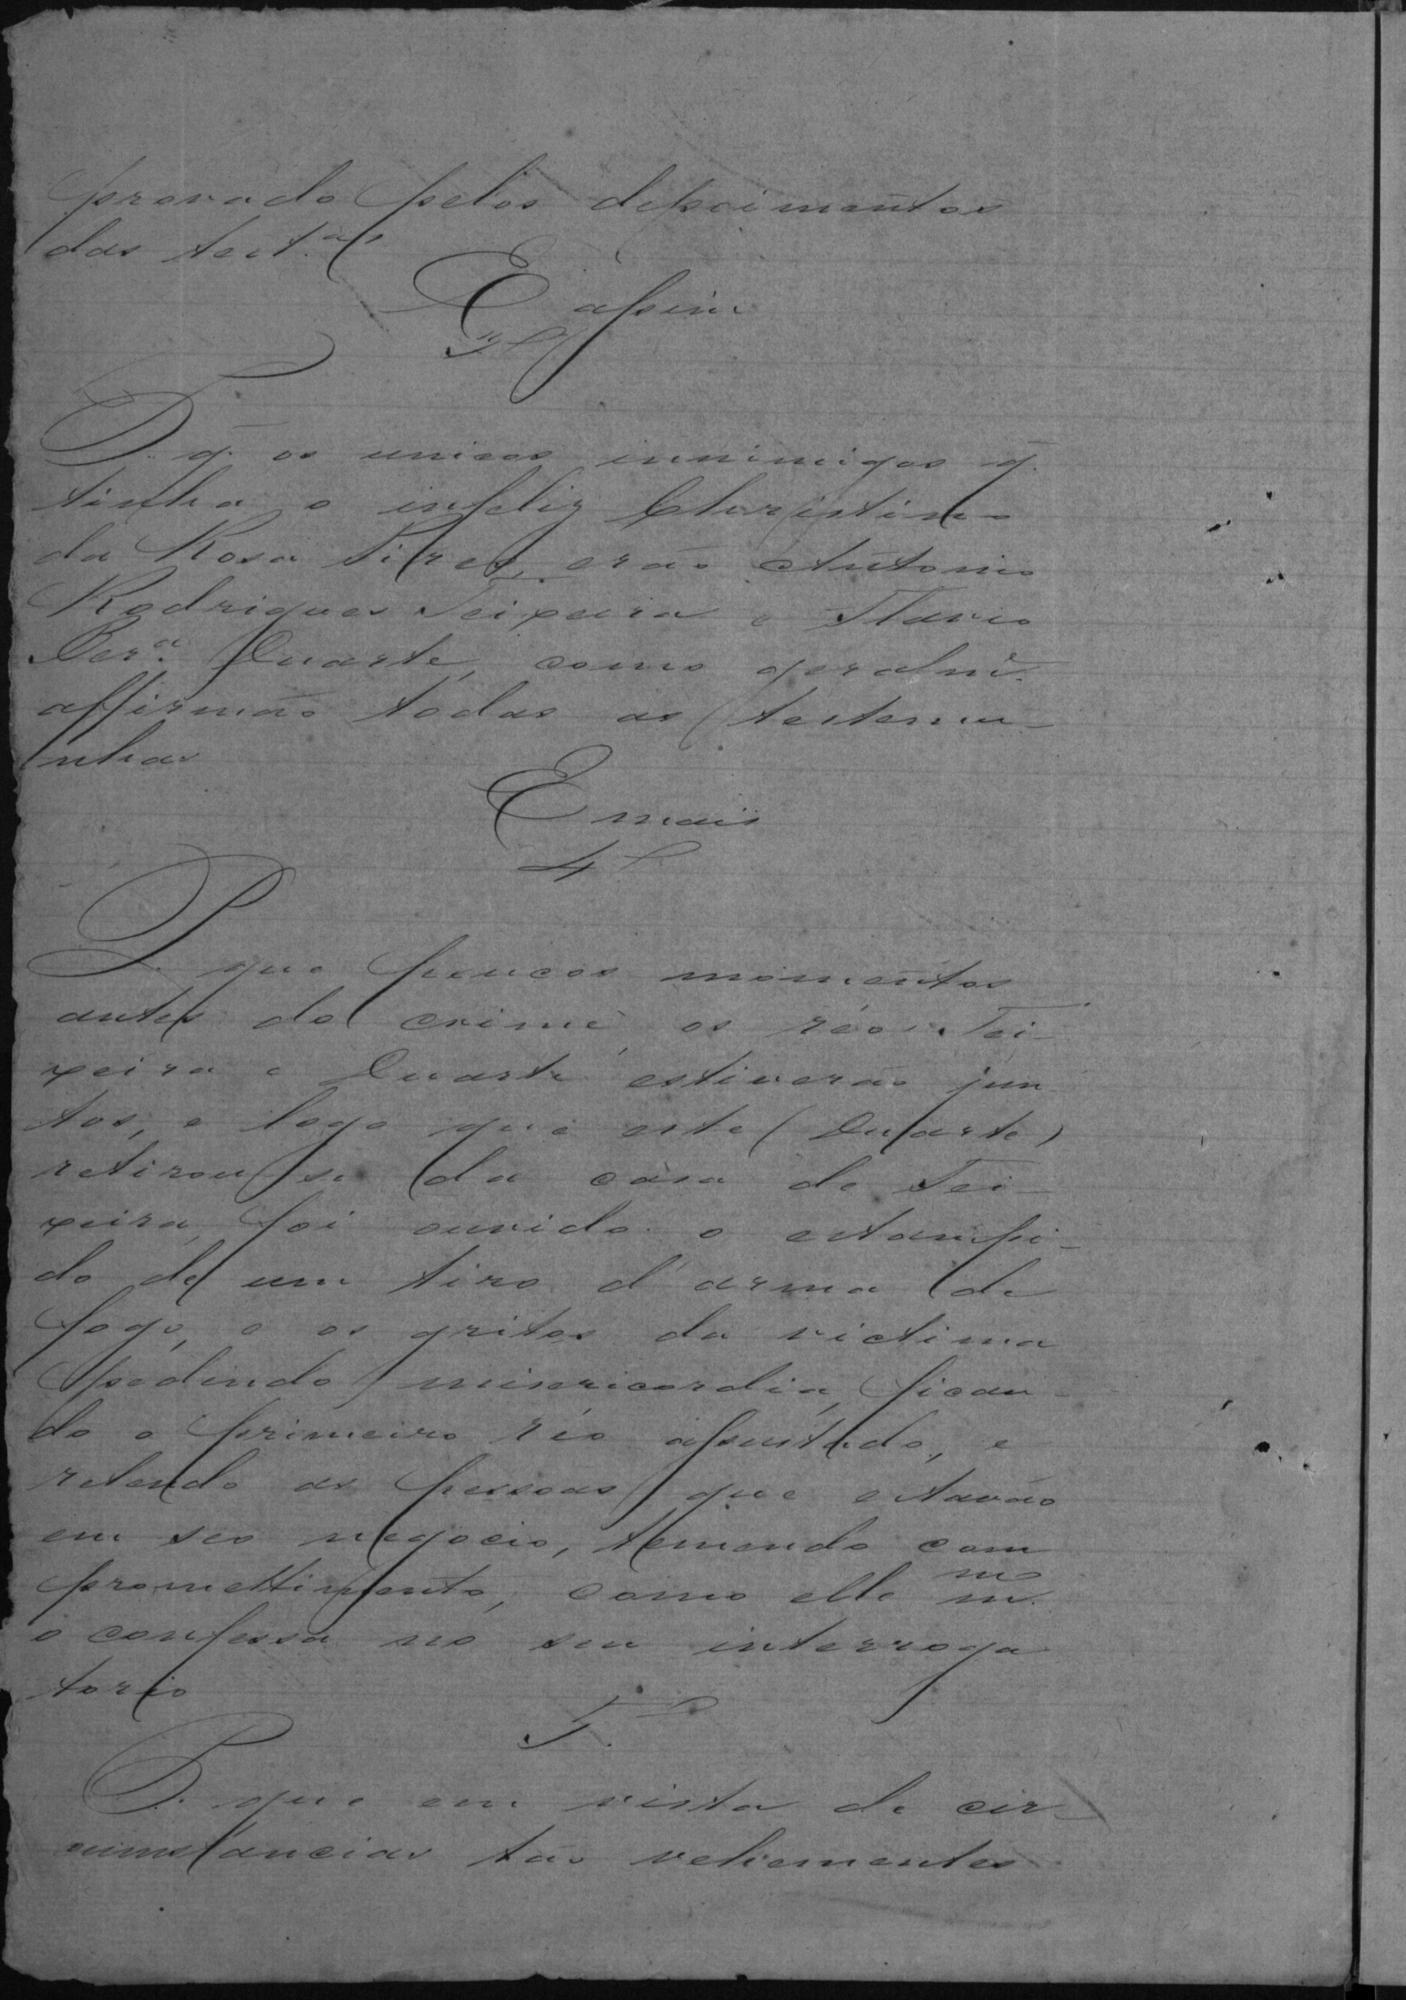 provado pelos depoimentos
das test.as
E assim
3º
P. q. os unicos innimigos q.
tinha o infeliz Christino
da Rosa Pires, erão Antonio
Rodrigues Teixeira e Flavio
Per.a Duarte, como geralm.
affirmão todas as testemu-
nhas
E mais
4º
P. que poucos momentos
antes do crime, os réos Tei-
xeira e Duarte estiverão jun
tos, e logo que este (Duarte)
retirou se da casa de Tei-
xeira, foi ouvido o estampi-
do de um tiro d'arma de
fogo, e os gritos da victima
pedindo misericordia, fican-
do o primeiro réo assustado, e
retendo as pessoas que estavão
em seo negocio, temendo com
promettimento, como elle m.mo
o confessa no seu interroga
torio
5º
P. que em vista de cir-
cumstancias tão vehementes